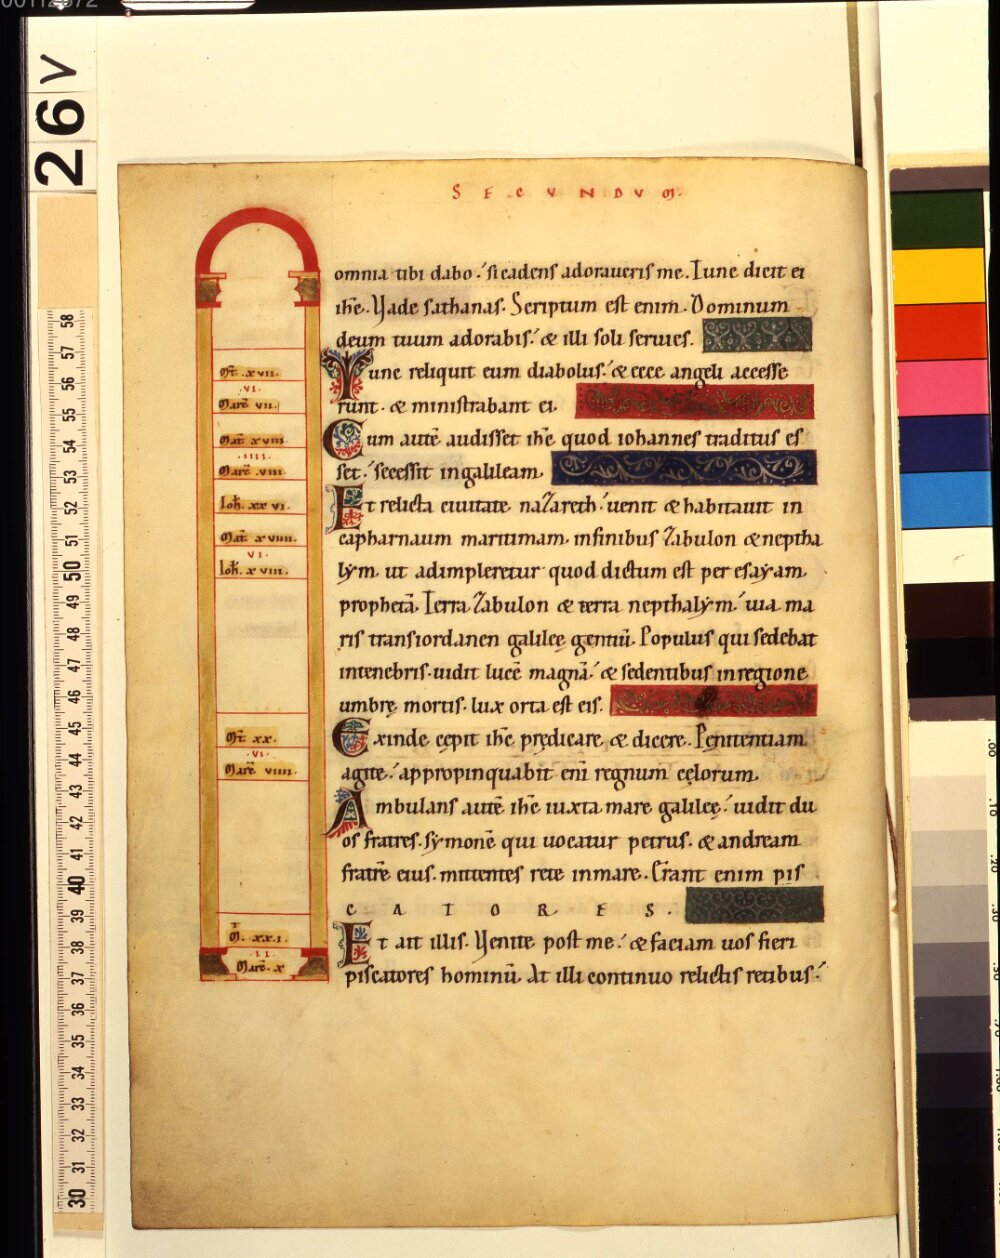 26v
SECVNDVM.
omnia tibi dabo. si cadens adoraueris me. Tunc dicit ei
ihc. Vade sathanas. Scriptum est enim. Dominum
deum tuum adorabis. & illi soli seruies.
Tunc reliquit eum diabolus. & ecce angeli accesse
runt. & ministrabant ei.
Cum autē audisset ihc quod iohannes traditus es
set. secessit in galileam.
Et relicta ciuitate nazareth. uenit & habitauit in
capharnaum maritimam. in finibus zabulon & neptha
lym. ut adimpleretur quod dictum est per esayam
prophetā. Terra zabulon & terra nepthalym. uia ma
ris transiordanen galileę gentiū. Populus qui sedebat
in tenebris. uidit lucē magnā. & sedentibus in regione
umbrę mortis. lux orta est eis.
Exinde cępit ihc prędicare & dicere. Pęnitentiam
agite. appropinquabit eni regnum cęlorum.
Ambulans autē ihc iuxta mare galileę. uidit du
os fratres. symonē qui uocatur petrus. & andream
fratrē eius. mittentes rete in mare. Erant enim pis
CATORES.
Et ait illis. Venite post me. & faciam uos fieri
piscatores hominū. At illi continuo relictis retibus.
Mt. xvii.
.vi.
Marc vii.
Mat. xviii.
.iiii.
Marc. viii.
Ioh. xxvi.
Mat. xviiii.
vi.
Ioh. xviii.
Mt. xx.
.vi.
Marc. viiii.
M. xxi.
.ii.
Marc. x
58
57
56
55
54
53
52
51
50
49
48
47
46
45
44
43
42
41
40
39
38
37
36
35
34
33
32
31
30